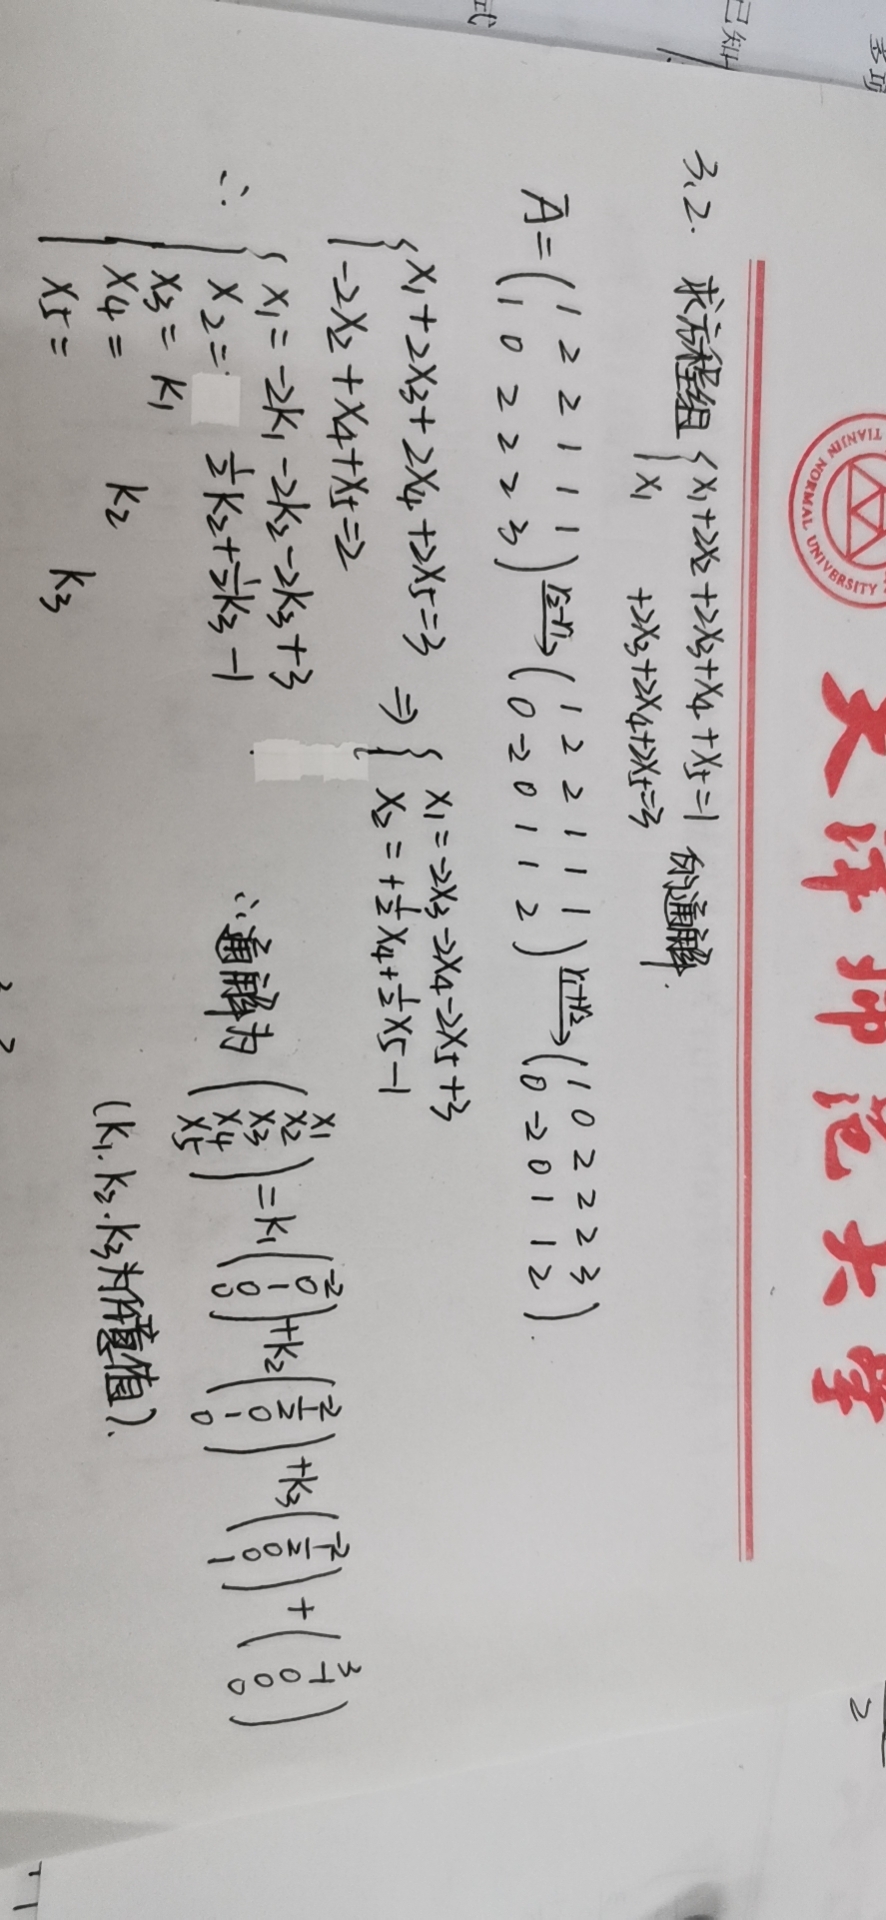 天津师范大学
TIANJIN NORMAL UNIVERSITY
3.2. 求方程组 { x₁+2x₂+2x₃+x₄+x₅=1
x₁ +2x₃+2x₄+2x₅=3 的通解.
Ā = ( 1 2 2 1 1 1 ) r₂-r₁→ ( 1 2 2 1 1 1 ) r₁+r₂→ ( 1 0 2 2 2 3 )
( 1 0 2 2 2 3 ) ( 0 -2 0 1 1 2 ) ( 0 -2 0 1 1 2 ).
{ x₁+2x₃+2x₄+2x₅=3 ⇒ { x₁=-2x₃-2x₄-2x₅+3
-2x₂+x₄+x₅=2 x₂=+½x₄+½x₅-1
∴ { x₁=-2k₁-2k₂-2k₃+3
x₂= ½k₂+½k₃-1
x₃= k₁
x₄= k₂
x₅= k₃
∴通解为 (x₁ x₂ x₃ x₄ x₅) = k₁(-2 0 1 0 0) + k₂(-2 ½ 0 1 0) + k₃(-2 ½ 0 0 1) + (3 -1 0 0 0)
(k₁.k₂.k₃为任意值).
已知
式
2